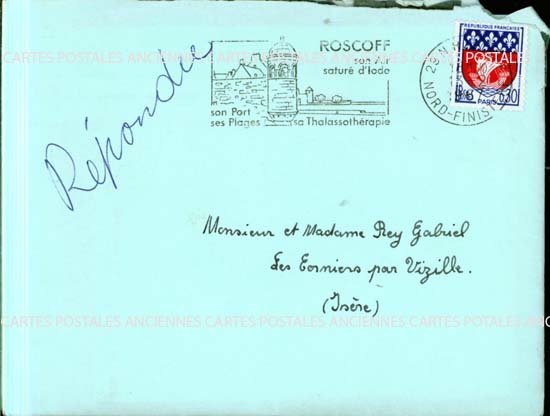 ROSCOFF
son Air
saturé d'Iode
son Port
ses Plages sa Thalassothérapie
REPUBLIQUE FRANÇAISE
0,30
PARIS
29 N
NORD-FINIS
Répondue
Monsieur et Madame Rey Gabriel
Les Corniers par Vizille.
(Isère)
CARTES POSTALES ANCIENNES CARTES POSTALES ANCIENNES CARTES POSTALES
CARTES POSTALES ANCIENNES CARTES POSTALES ANCIENNES CARTES POSTALES